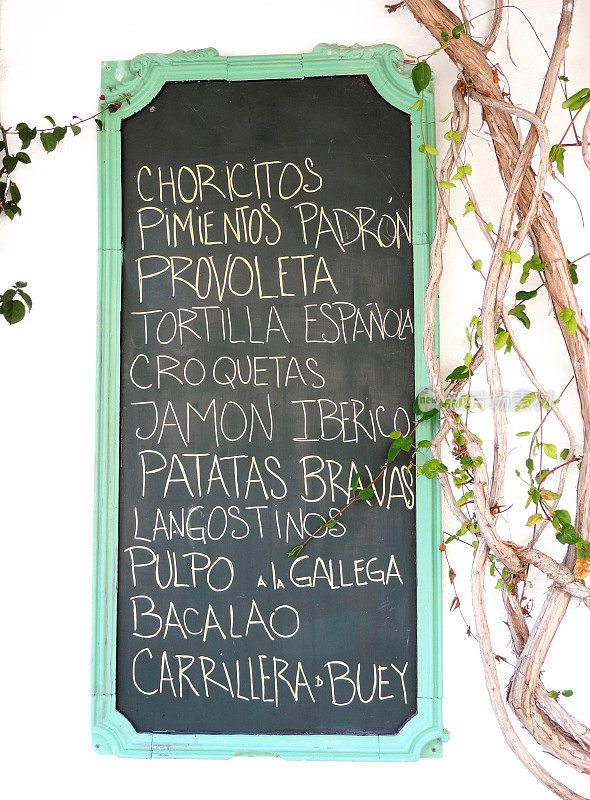 CHORICITOS
PIMIENTOS PADRÓN
PROVOLETA
TORTILLA ESPAÑOLA
CROQUETAS
JAMON IBERICO
PATATAS BRAVAS
LANGOSTINOS
PULPO A LA GALLEGA
BACALAO
CARRILLERA D BUEY